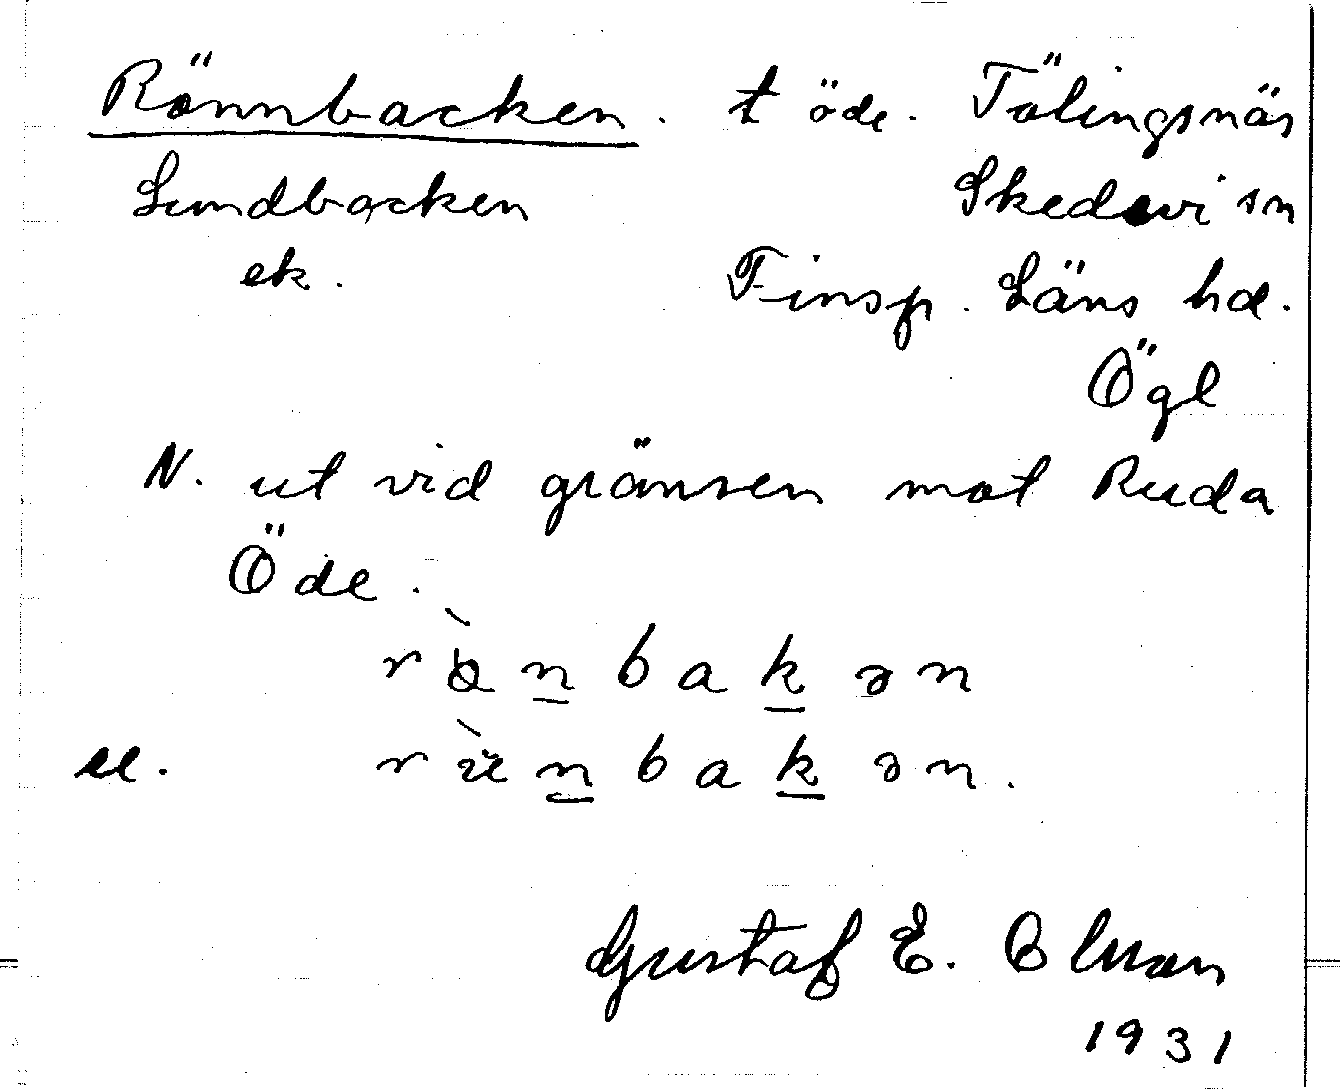 Rönnbacken. t öde. Tölingsnäs
Lundbacken Skedevi sn
ek. Finsp. Läns hd.
Ögl
N. ut vid gränsen mot Ruda
Öde.
bakən
el. bakən.
Gustaf E. Olsson
1931